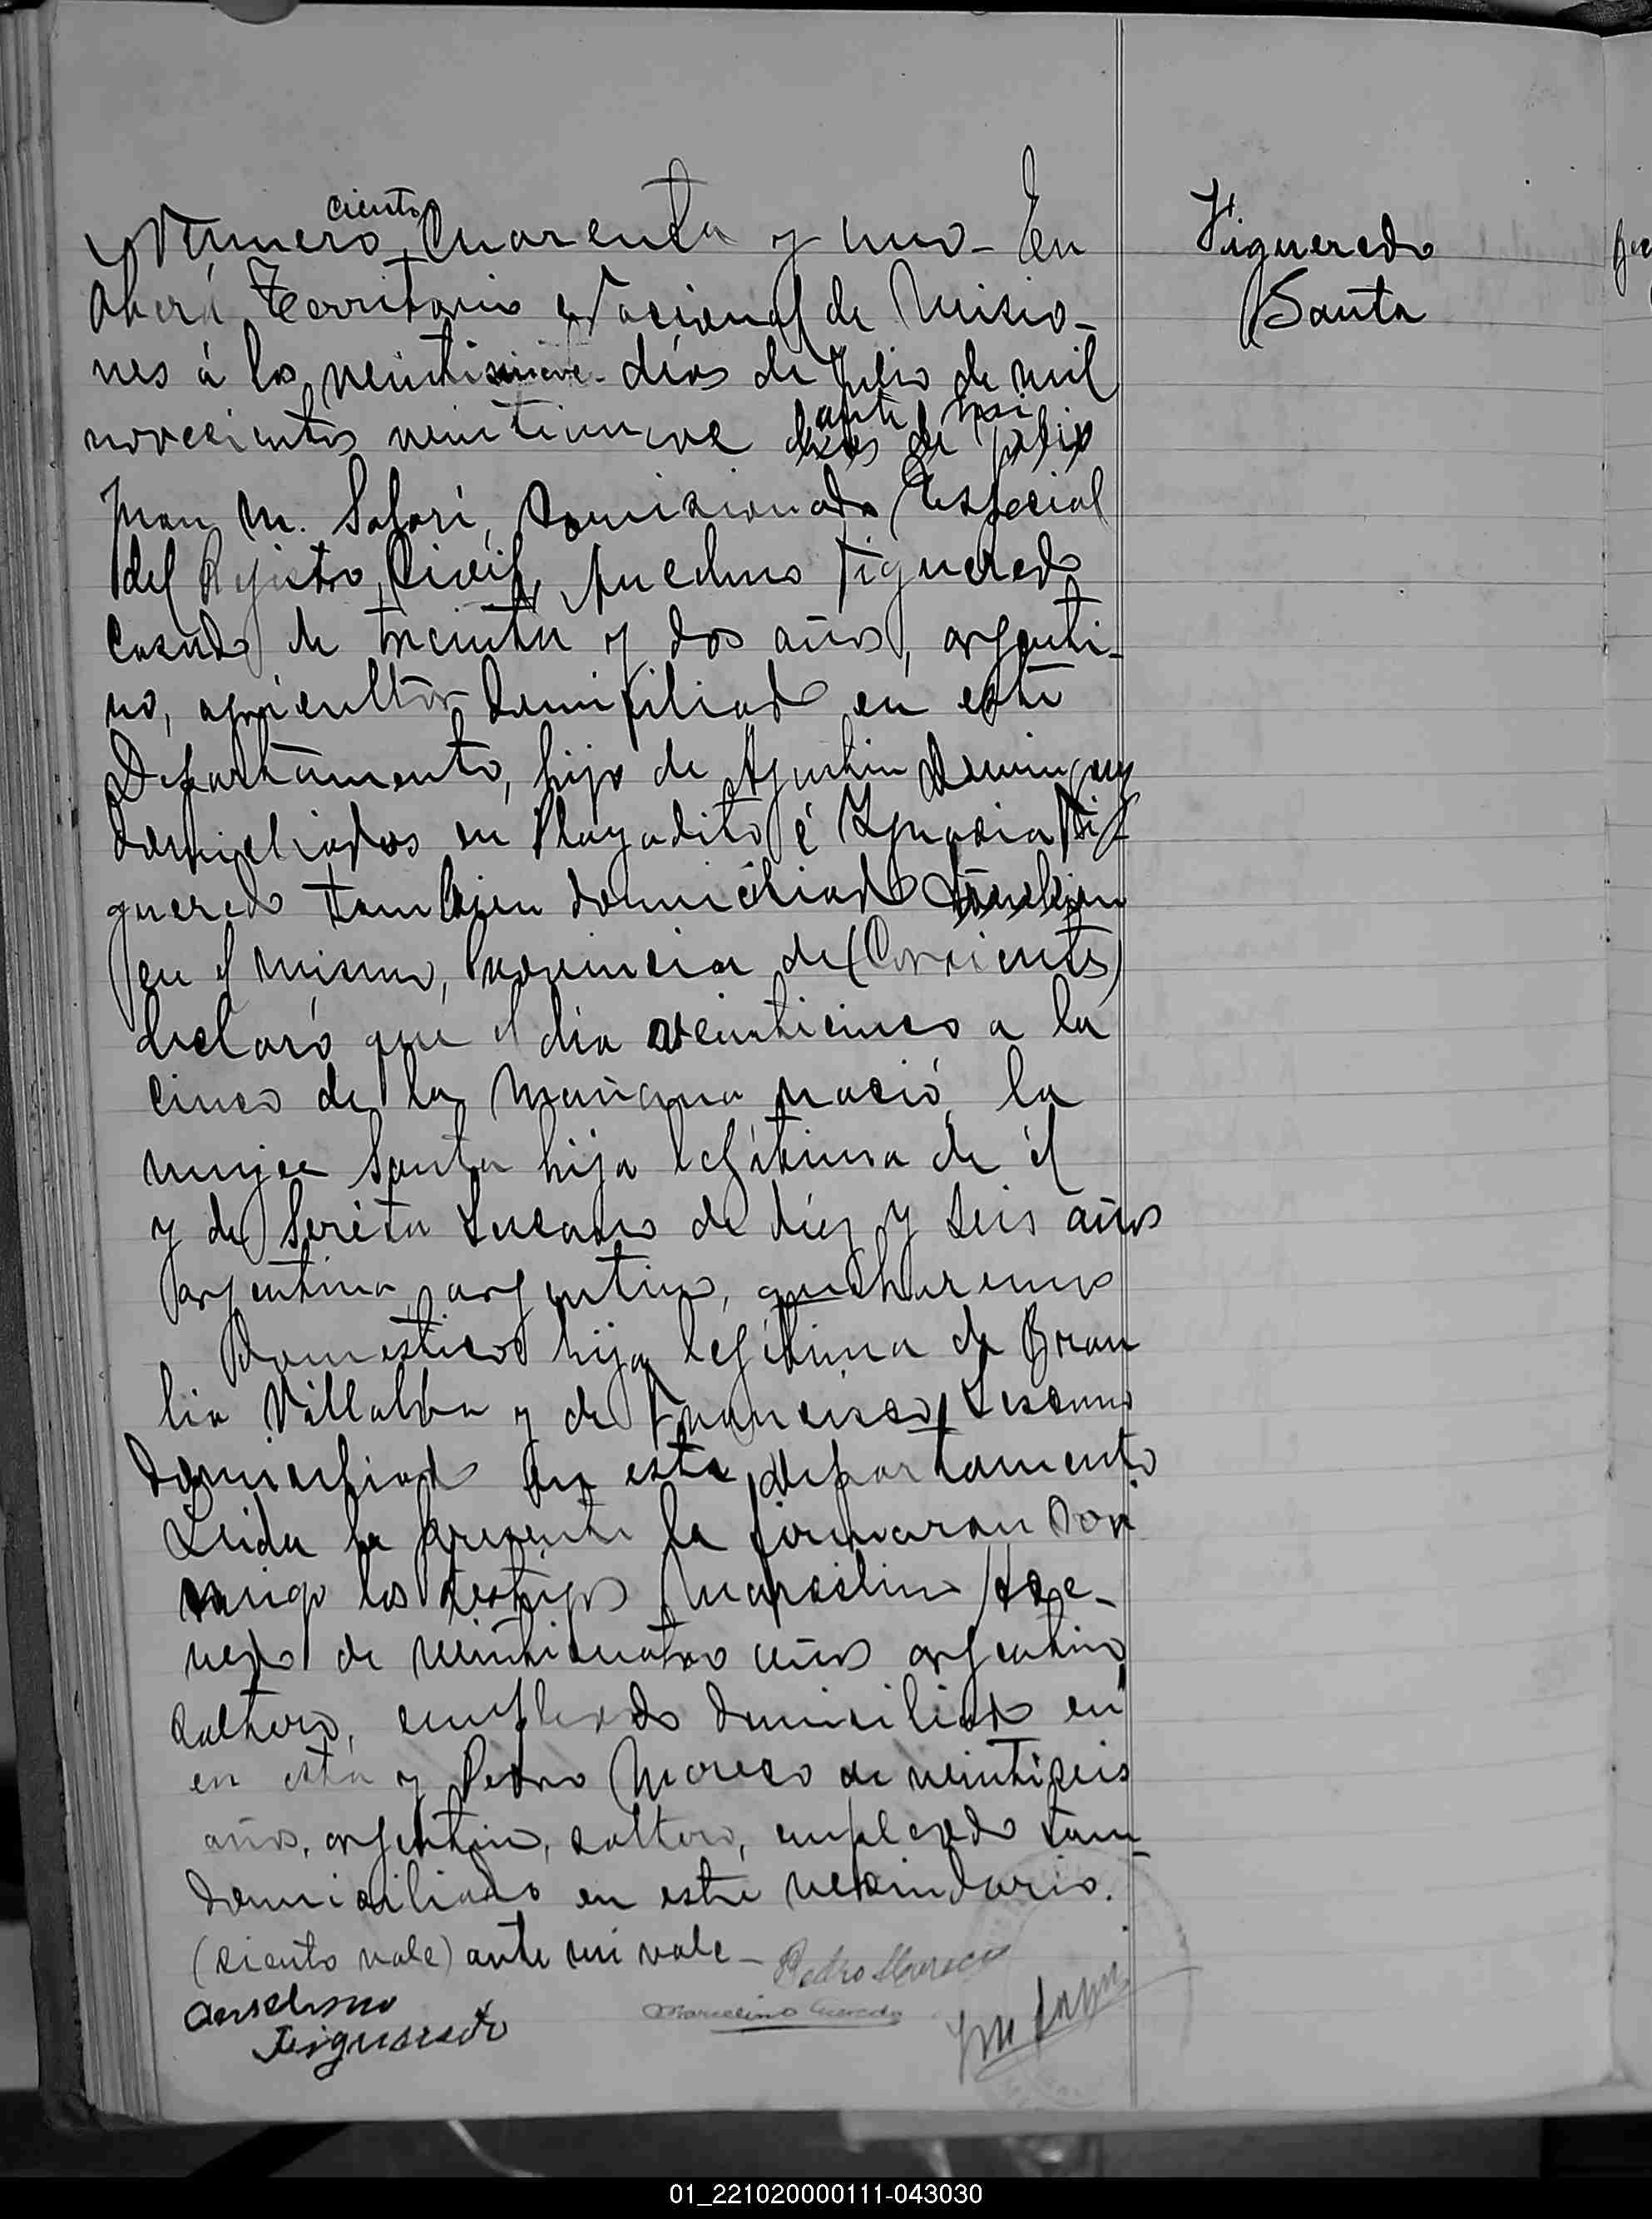 ciento
Número Cuarenta y uno - En
Oberá Territorio Nacional de Misio-
nes á los veintinueve - días de Julio de mil
ante mi
novecientos veintinueve dias de julio
Juan M. Solari, Comisionado Especial
del Rejistro Civil, Anselmo Figueredo
casado de treinta y dos años, argenti-
no, agricultor domiciliado en este
Departamento, hijo de Agustin
domiciliados en Playadito é Ignacia Fi-
gueredo tambien domiciliado tambien
en el mismo, Provincia de (Corrientes)
declaró que el dia veinticinco a la
cinco de la mañana nació la
mujer Santa hija legítima de él
y de Lescano de diez y seis años
argentina, argentino, quehaceres
domesticos hija legítima de Brau
lia Villalba y de Francisco Lescano
domiciliado en este departamento
Leida la presente la firmaron con
migo los testigos Marcelino Ace-
vedo de veinticuatro años argentino
soltero, empleado domiciliado en
en esta y Pedro Moreco de veintiseis
años, argentino, soltero, empleado tam-
domiciliado en este vecindario.
(ciento vale) ante mi vale -
Pedro
Anselmo
Figueredo
Marcelino Acevedo
Figueredo
Santa
01_221020000111-043030